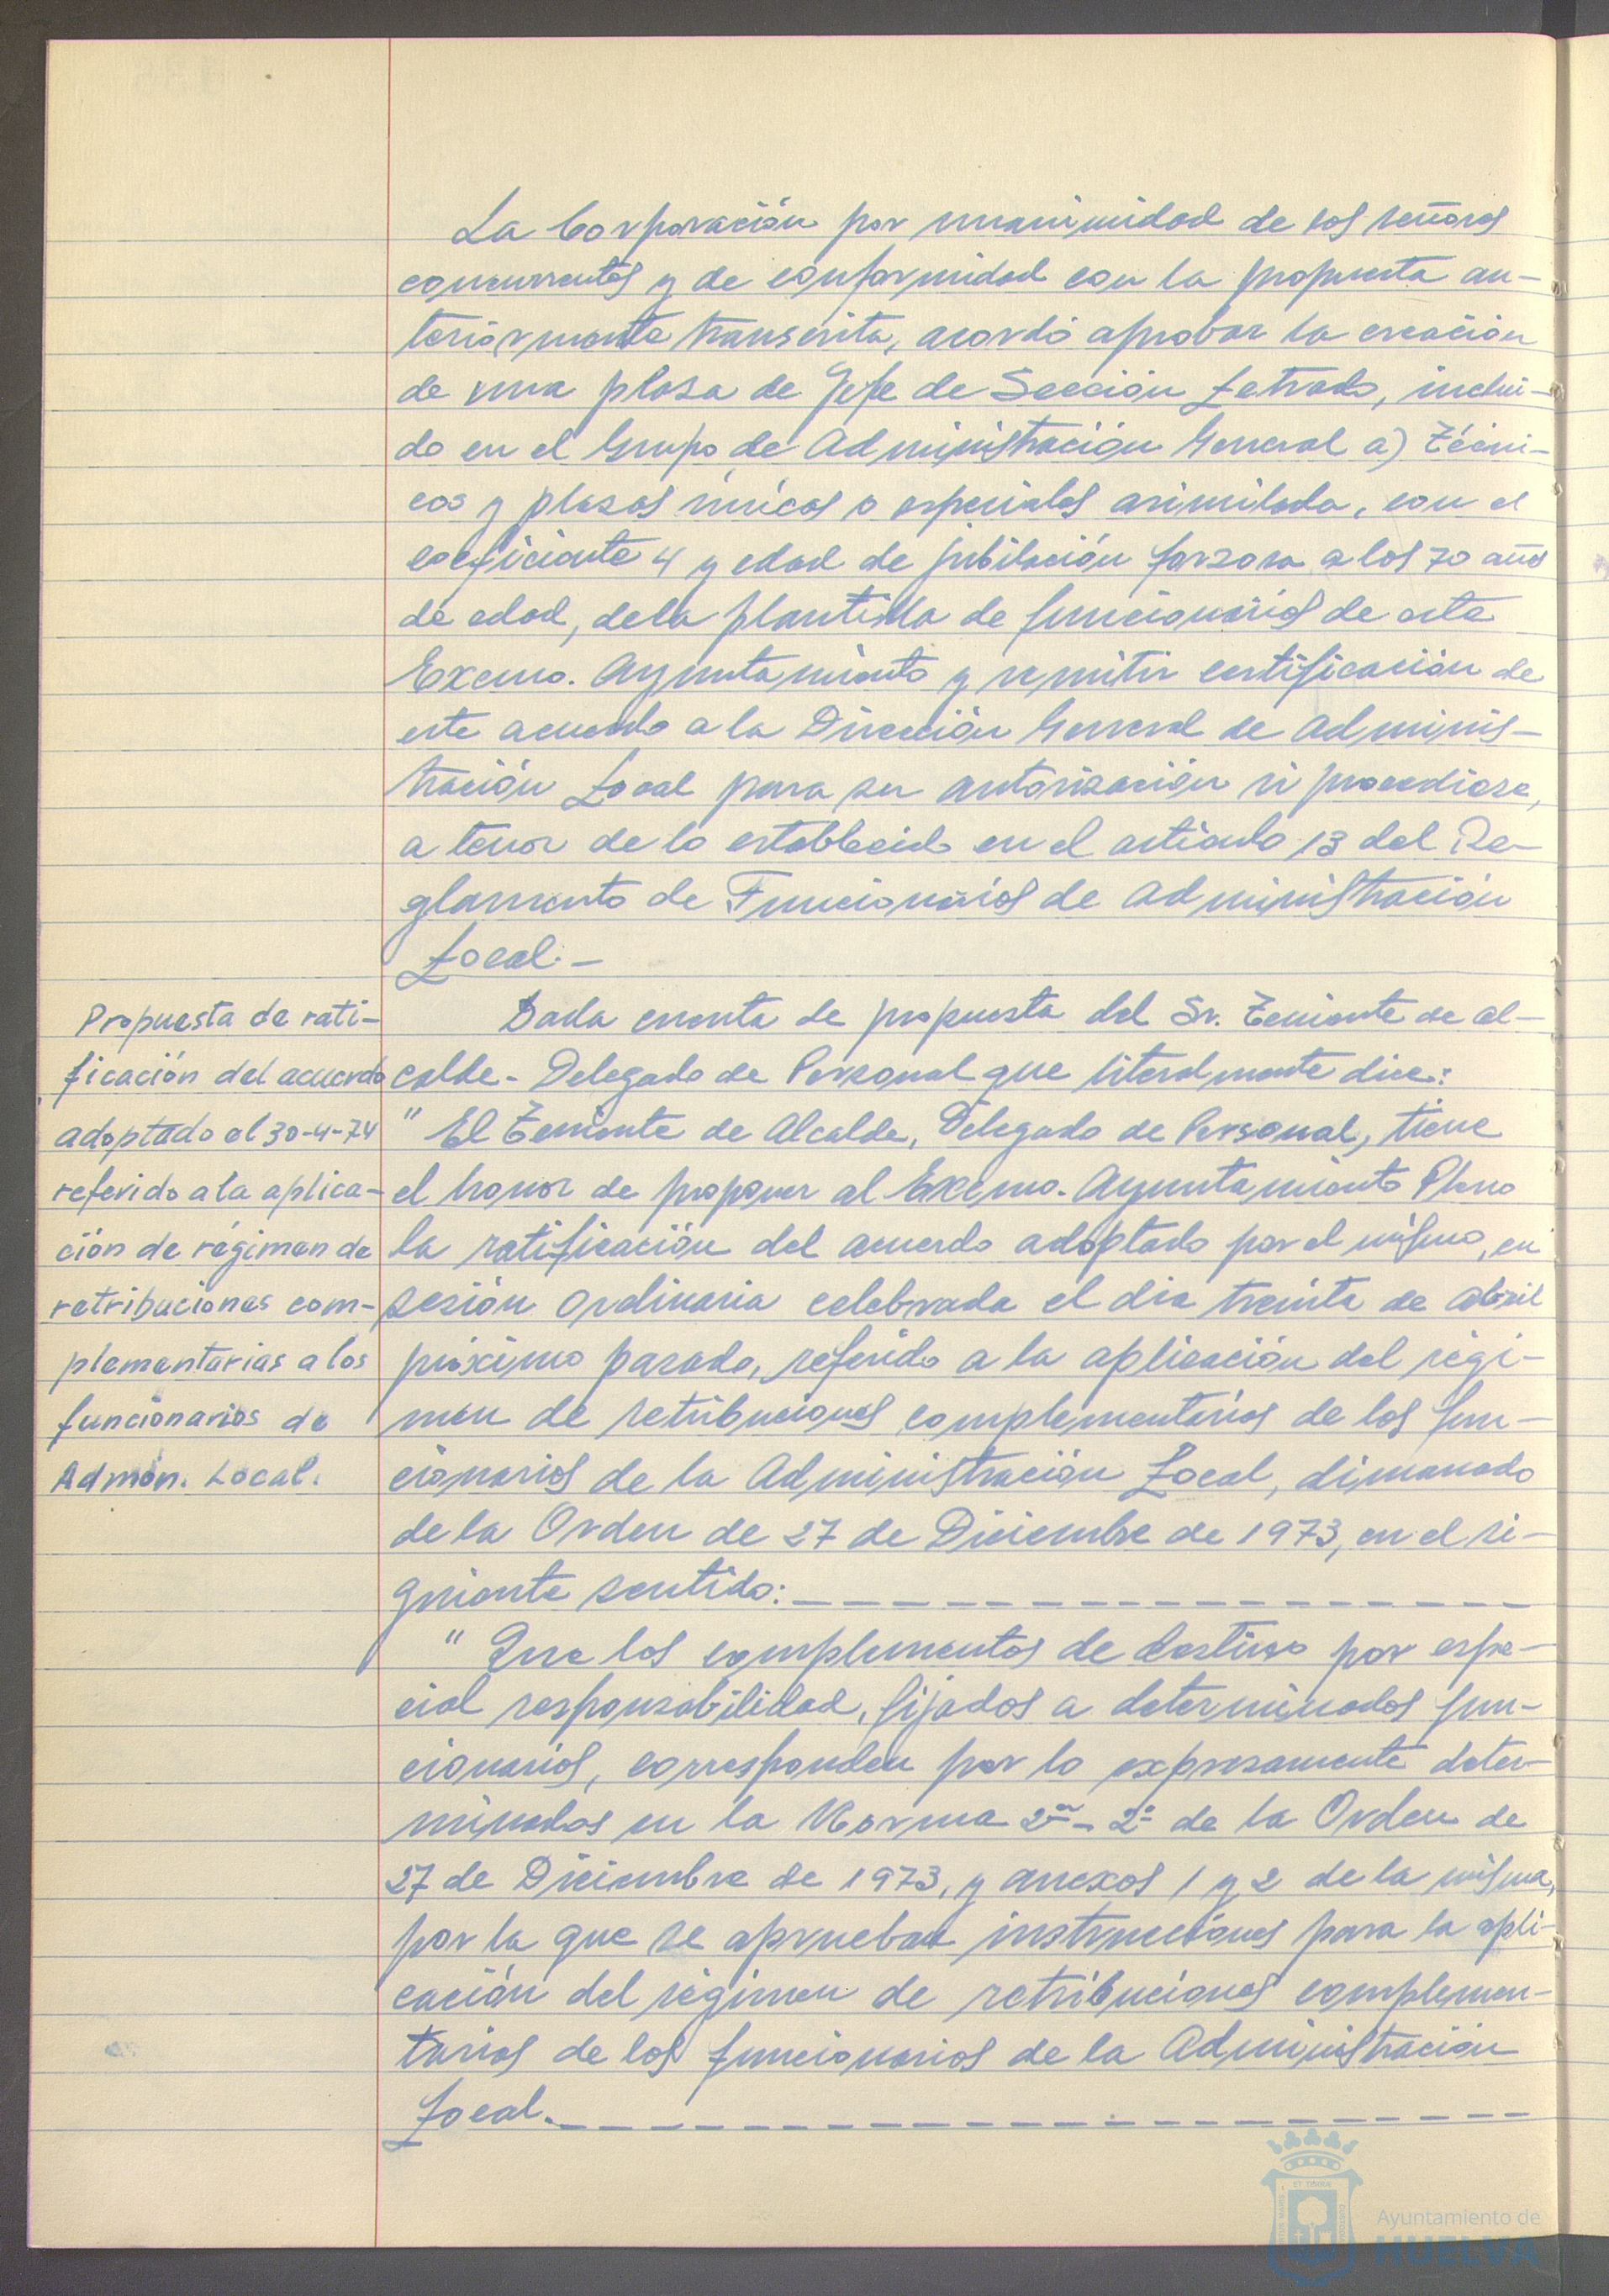 La Corporación por unanimidad de los señores
concurrentes y de conformidad con la propuesta an-
teriormente transcrita, acordó aprobar la creación
de una plaza de Jefe de Sección Letrado, inclui-
do en el Grupo de Administración General a) Técni-
cos y plazas únicas o especiales asimilada, con el
coeficiente 4 y edad de jubilación forzosa a los 70 años
de edad, de la plantilla de funcionarios de este
Excmo. Ayuntamiento y remitir certificación de
este acuerdo a la Dirección General de Adminis-
tración Local para su autorización si procediese,
a tenor de lo establecido en el artículo 13 del Re-
glamento de Funcionarios de Administración
Local.-
Propuesta de rati-
ficación del acuerdo
adoptado el 30-4-74
referido a la aplica-
ción de régimen de
retribuciones com-
plementarias a los
funcionarios de
Admón. Local.
Dada cuenta de propuesta del Sr. Teniente de al-
calde- Delegado de Personal que literalmente dice:
" El Teniente de Alcalde, Delegado de Personal, tiene
el honor de proponer al Excmo. Ayuntamiento Pleno
la ratificación del acuerdo adoptado por el mismo, en
sesión ordinaria celebrada el dia treinta de abril
próximo pasado, referido a la aplicación del régi-
men de retribuciones complementarias de los fun-
cionarios de la Administración Local, dimanado
de la Orden de 27 de Diciembre de 1973, en el si-
guiente sentido:
" Que los complementos de destino por espe-
cial responsabilidad, fijados a determinados fun-
cionarios, corresponden por lo expresamente deter-
minados en la Norma 2ª- 2º de la Orden de
27 de Diciembre de 1973, y anexos 1 y 2 de la misma,
por la que se aprueban instrucciones para la apli-
cación del régimen de retribuciones complemen-
tarias de los funcionarios de la Administración
Local.
Ayuntamiento de
HUELVA